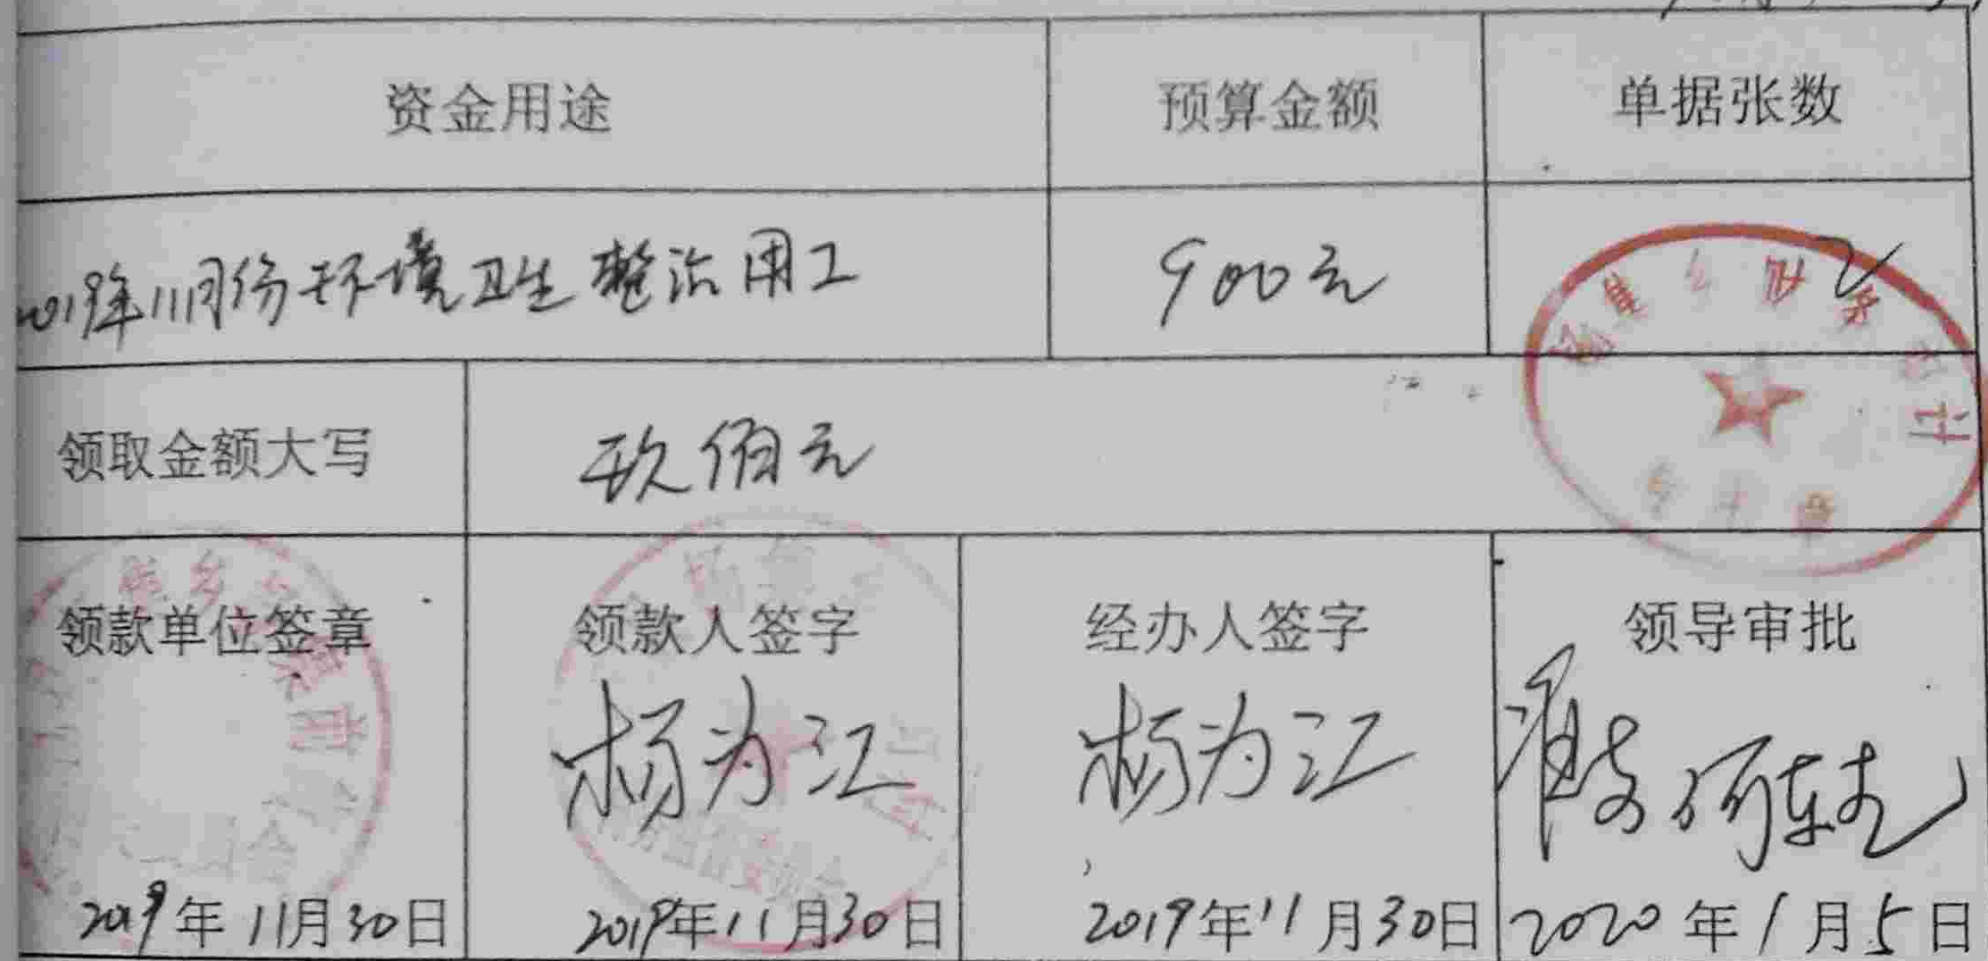 资金用途 预算金额 单据张数
2019年11月份环境卫生整治用工 900元 2
领取金额大写 玖佰元
领款单位签章 领款人签字 经办人签字 领导审批
杨为江 杨为江
2019年11月30日 2019年11月30日 2019年11月30日 2020年1月5日